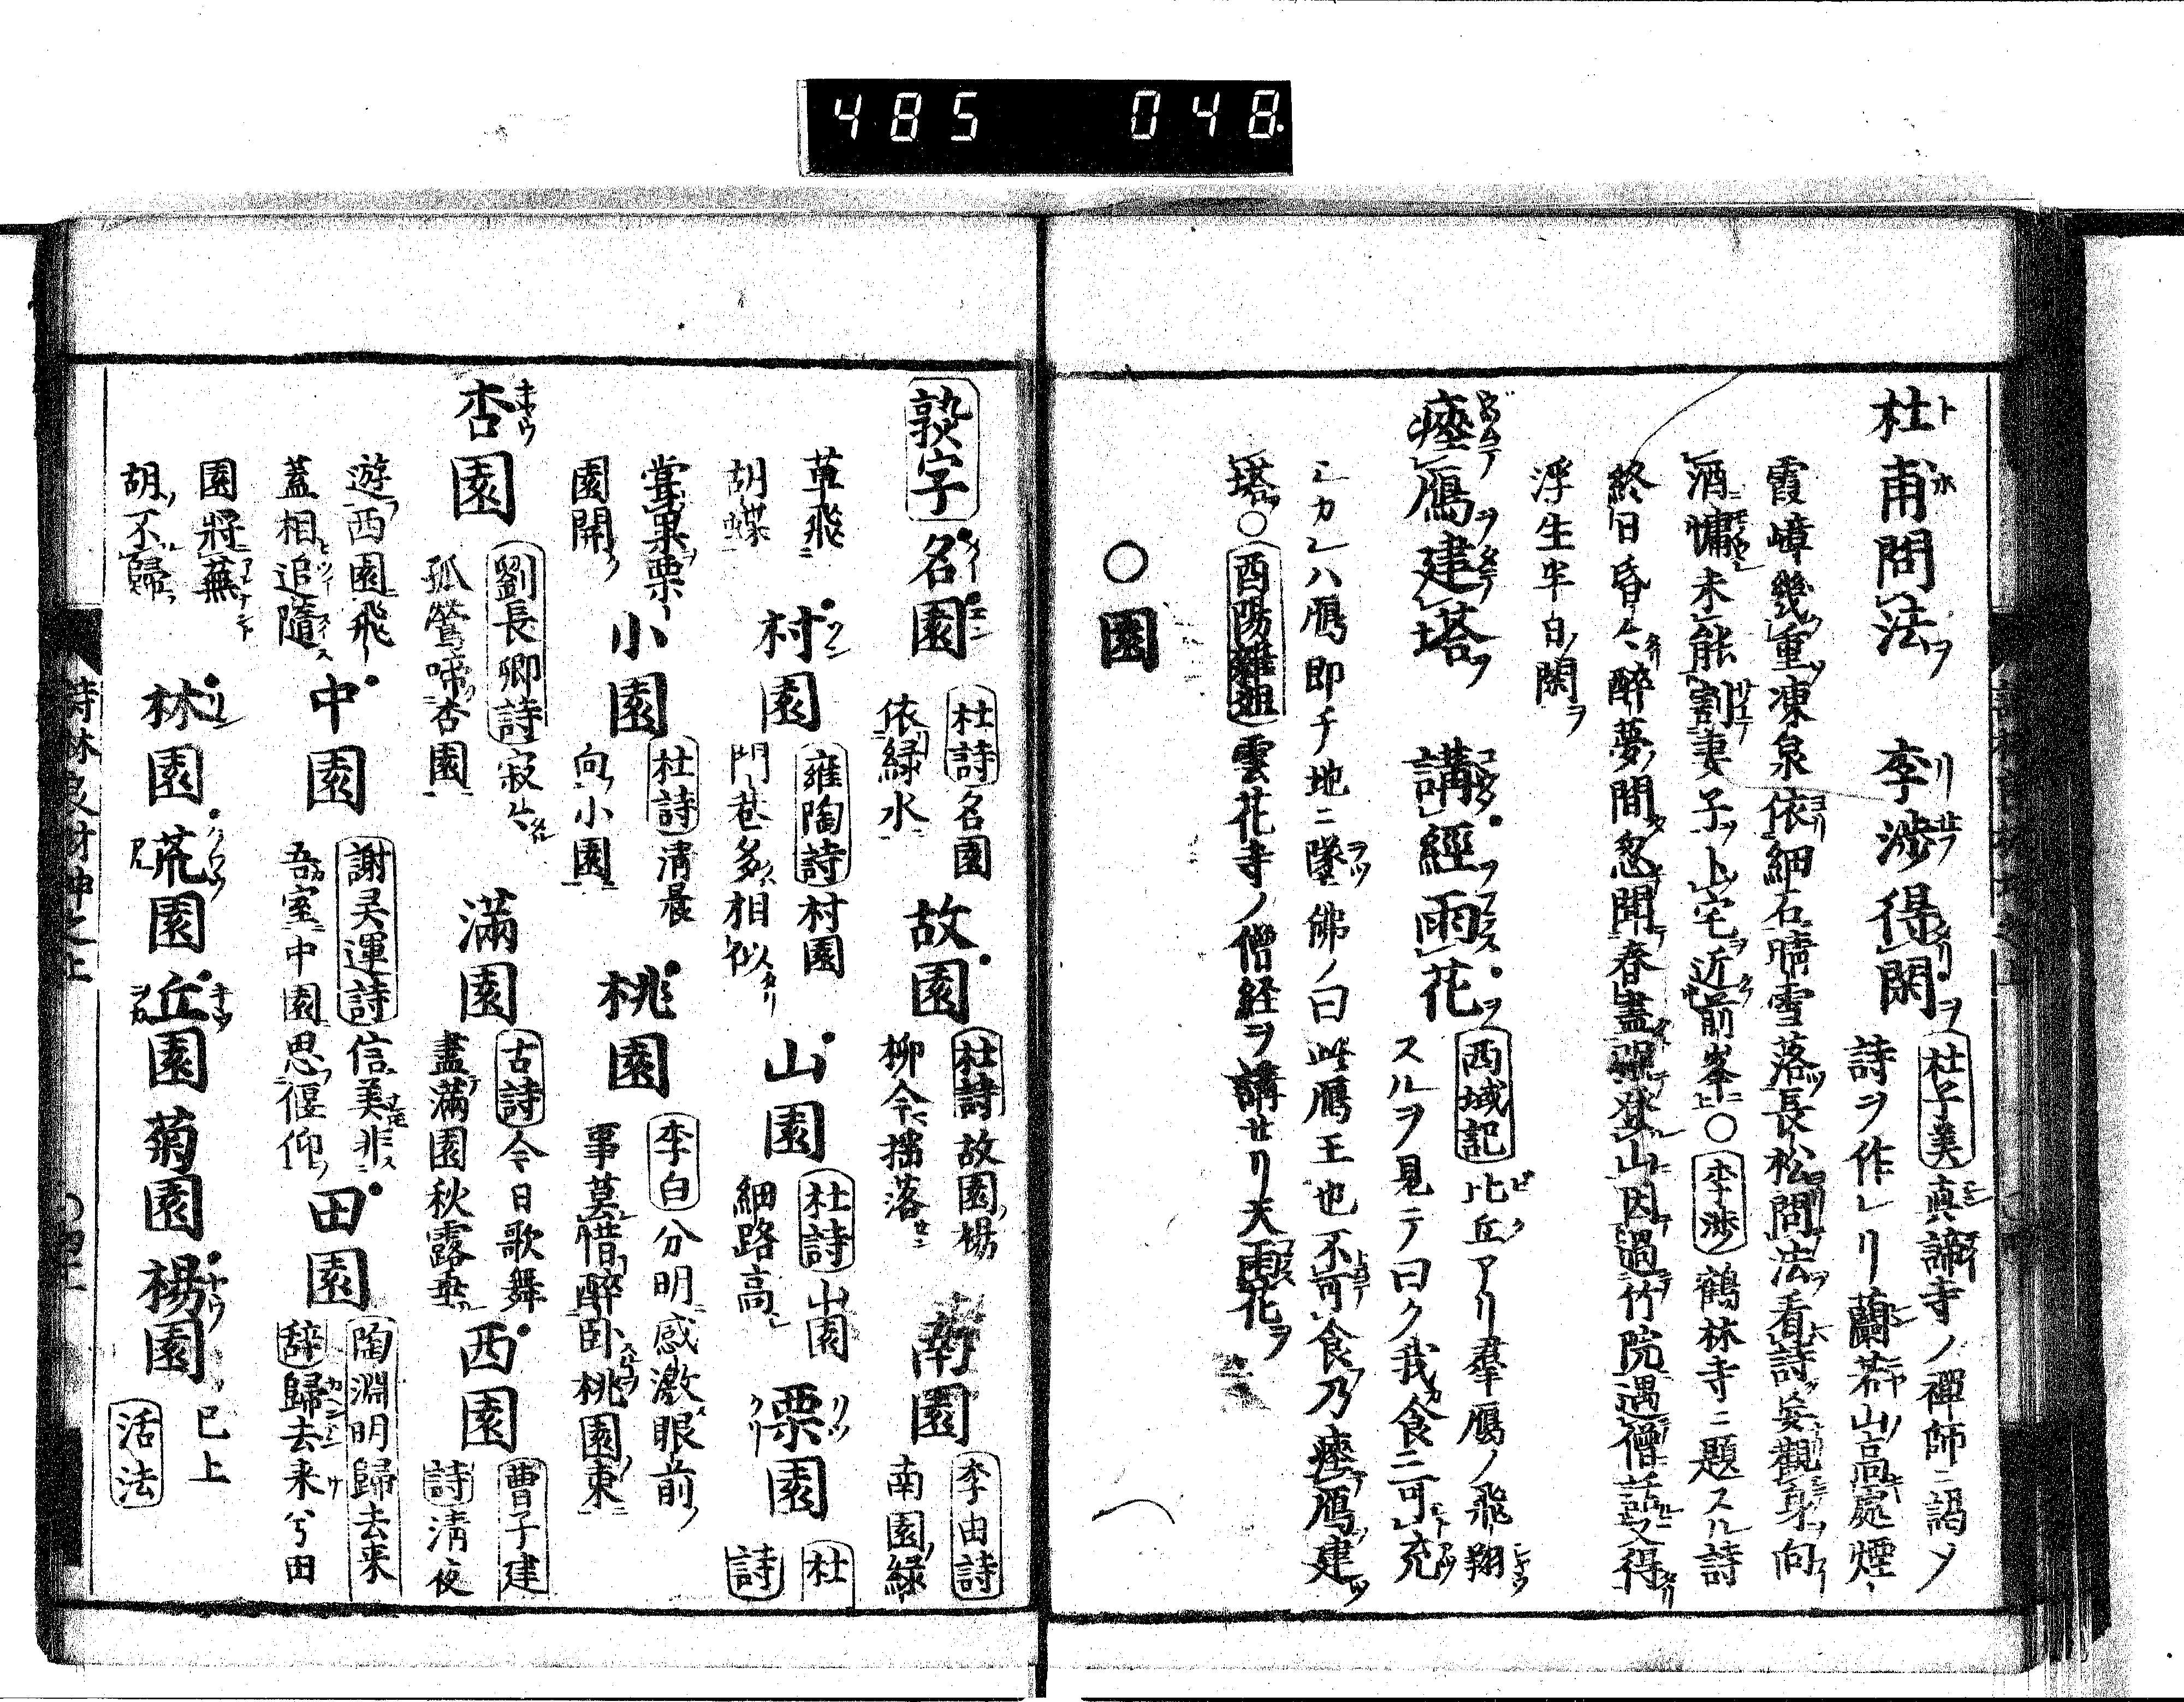 485 048
杜甫問法ヲ 李渉得閑ヲ
杜子美真諦寺ノ禪師ニ謁ノ
詩ヲ作レリ蘭若山高處煙
霞嶂幾重凍泉依細石晴雪落長松問法看詩妄觀身向
酒慵未能割妻子卜宅近前峯○李渉鶴林寺ニ題スル詩
終日昏々醉夢間忽聞春盡強登山因過竹院遇僧話又得
浮生半日閑ヲ
瘞鴈ヲ建塔ヲ 講經ヲ雨花ヲ
西域記比丘アリ羣鴈ノ飛翔
スルヲ見テ曰ク我食ニ可充
ミカレハ鴈即チ地ニ墜佛ノ曰此鴈王也不可食乃瘞鴈建
塔○酉陽雜俎雲花寺ノ僧経ヲ講セリ天雨花ヲ
○園
熟字
名園 杜詩名園
依緑水
故園 杜詩故園楊
柳今搖落
南園 李由詩
南園緑
草飛
胡蝶
村園 雍陶詩村園
門巷多相似
山園 杜詩山園
細路高
栗園 杜
詩
嘗果栗
園開
小園 杜詩清晨
向小園
桃園 李白分明感激眼前
事莫惜醉卧桃園東
杏園 劉長卿詩寂々
孤鶯啼杏園
滿園 古詩今日歌舞
盡滿園秋露垂
西園 曹子建
詩清夜
遊西園飛
蓋相追隨
中園 謝灵運詩信美非
吾室中園思偃仰
田園 陶淵明歸去来
辞歸去来兮田
園將蕪
胡不歸
林園 荒園 丘園 菊園 楊園 已上
活法
詩林良材中之上